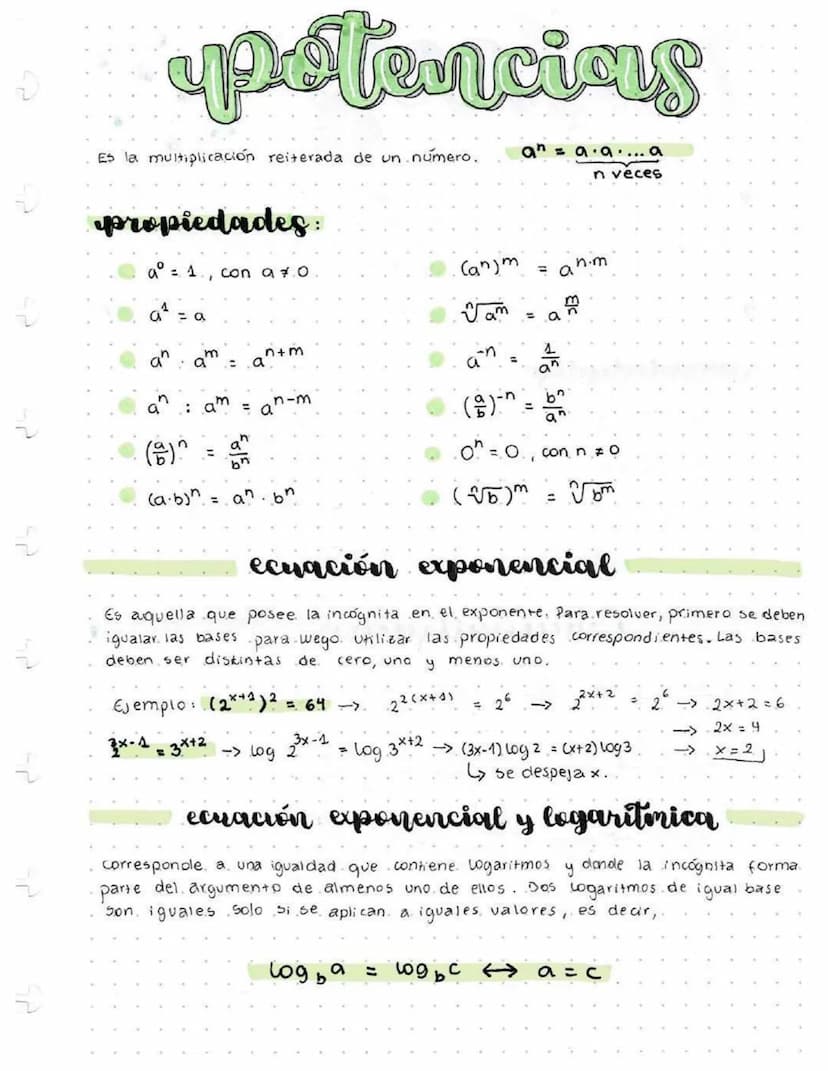 potencias
Es la multiplicación reiterada de un número. aⁿ = a·a·...a
n veces
propiedades:
a⁰ = 1, con a ≠ 0
a¹ = a
aⁿ · aᵐ = aⁿ⁺ᵐ
aⁿ : aᵐ = aⁿ⁻ᵐ
(a/b)ⁿ = aⁿ/bⁿ
(a·b)ⁿ = aⁿ · bⁿ
(aⁿ)ᵐ = a^(n·m)
ⁿ√aᵐ = a^(m/n)
a⁻ⁿ = 1/aⁿ
(a/b)⁻ⁿ = bⁿ/aⁿ
0ⁿ = 0, con n ≠ 0
(ⁿ√b)ᵐ = ⁿ√bᵐ
ecuación exponencial
Es aquella que posee la incógnita en el exponente. Para resolver, primero se deben
igualar las bases para luego utilizar las propiedades correspondientes. Las bases
deben ser distintas de cero, uno y menos uno.
Ejemplo: (2^(x+1))² = 64 → 2^(2(x+1)) = 2⁶ → 2^(2x+2) = 2⁶ → 2x+2=6
→ 2x = 4
2^(3x-1) = 3^(x+2) → log 2^(3x-1) = log 3^(x+2) → (3x-1) log 2 = (x+2) log 3 → x = 2
↳ se despeja x.
ecuación exponencial y logarítmica
Corresponde a una igualdad que contiene logaritmos y donde la incógnita forma
parte del argumento de almenos uno de ellos. Dos logaritmos de igual base
son iguales solo si se aplican a iguales valores, es decir,
log_b a = log_b c ↔ a = c